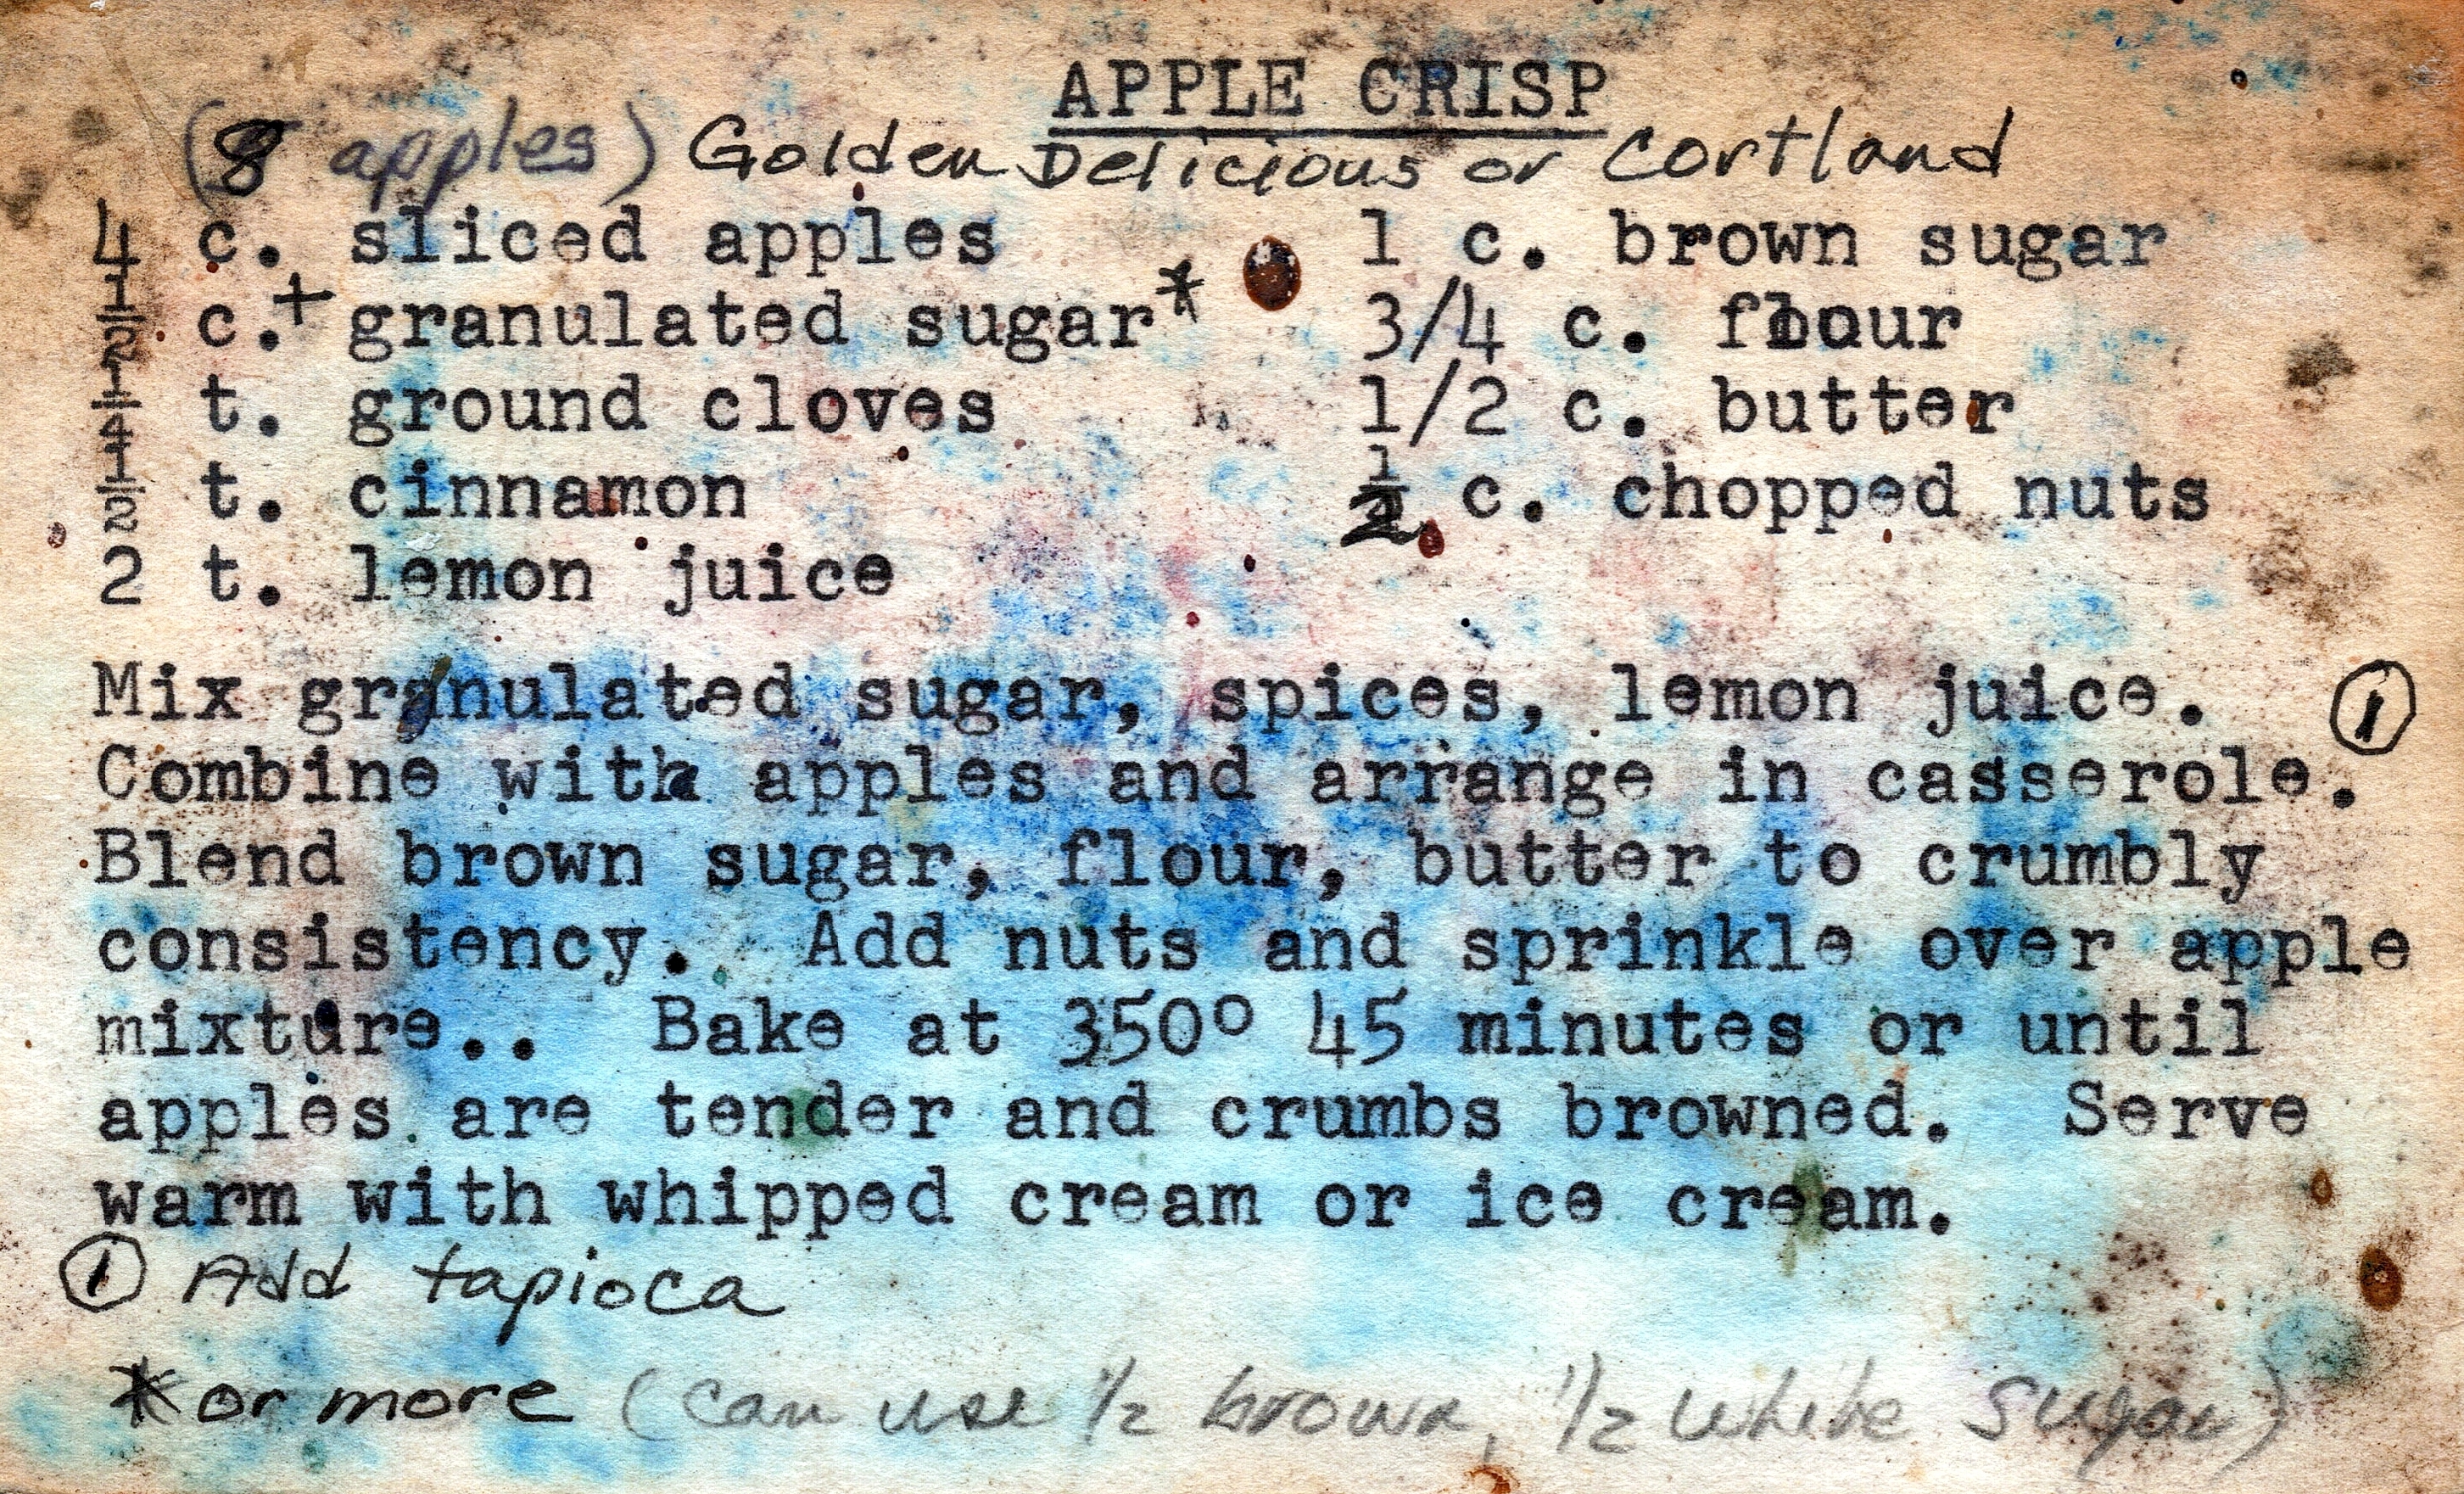 APPLE CRISP
(8 apples) Golden Delicious or Cortland
4 c. sliced apples
1/2 c.+ granulated sugar*
1/4 t. ground cloves
1/2 t. cinnamon
2 t. lemon juice
1 c. brown sugar
3/4 c. flour
1/2 c. butter
1/2 c. chopped nuts
Mix granulated sugar, spices, lemon juice. ①
Combine with apples and arrange in casserole.
Blend brown sugar, flour, butter to crumbly
consistency. Add nuts and sprinkle over apple
mixture.. Bake at 350º 45 minutes or until
apples are tender and crumbs browned. Serve
warm with whipped cream or ice cream.
① Add tapioca
*or more (can use 1/2 brown, 1/2 white sugar)